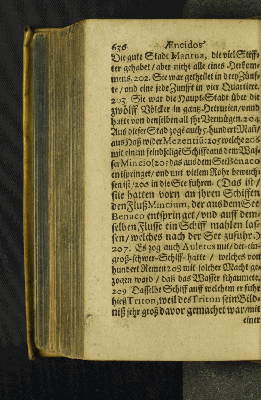 636 Æneidos
Die gute Stadt Mantua, die viel Stiff-
ter gehabt / aber nicht alle eines Herkom-
mens. 202. Sie war getheilet in drey Zünff-
te / und eine jede Zunfft in vier Quartiere.
203 Sie war die Haupt-Stadt über die
zwölff Völcker in gantz Hetrurien / und
hatte von denselben all ihr Vermögen. 204
Aus dieser Stad zogē auch 5. hundert Mañ /
aus Haß wider Mezentiū: 205 welche 206
mit einem feindselige Schiff aus dem Was-
ser Mincio (205 das aus dem See Benaco
entspringet / und mit vielem Rohr bewach-
sen ist / 206 in die See fuhren. (Das ist /
sie hatten vorn an ihren Schiffen
den Fluß Mincium, der aus dem See
Benaco entspringet / und auff dem-
selben Flusse ein Schiff mahlen las-
sen / welches nach der See zufuhr.)
207. Es zog auch Auletes mit / der ein
groß-schwer-Schiff hatte / welches von
hundert Remen 208 mit solcher Macht ge-
zogen ward / daß das Wasser schäumete.
209 Dasselbe Schiff auff welchem er fuhr
hieß Triton, weil des Triton sein Bild-
niß sehr groß davor gemachet war / mit
einer